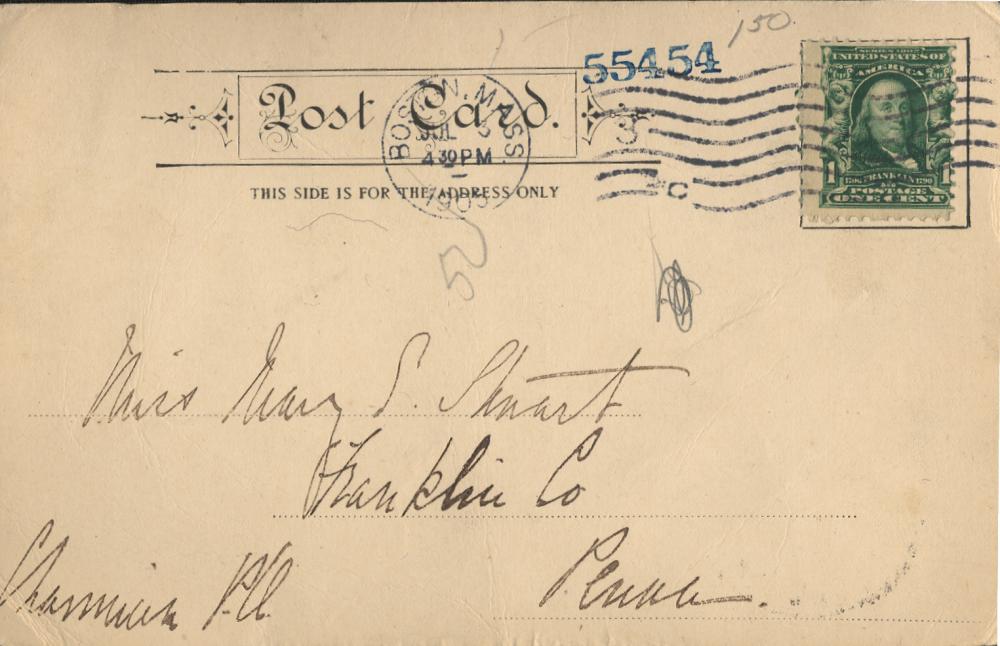 150
55454
Post Card.
BOSTON, MASS.
JUL 3
4 30 PM
1905
3
C
THIS SIDE IS FOR THE ADDRESS ONLY
SERIES 1902
UNITED STATES OF
AMERICA
1706 FRANKLIN 1790
1 1
POSTAGE
ONE CENT
50
Miss Mary S. Stuart
Franklin Co
Charmian P.O.
Penna.